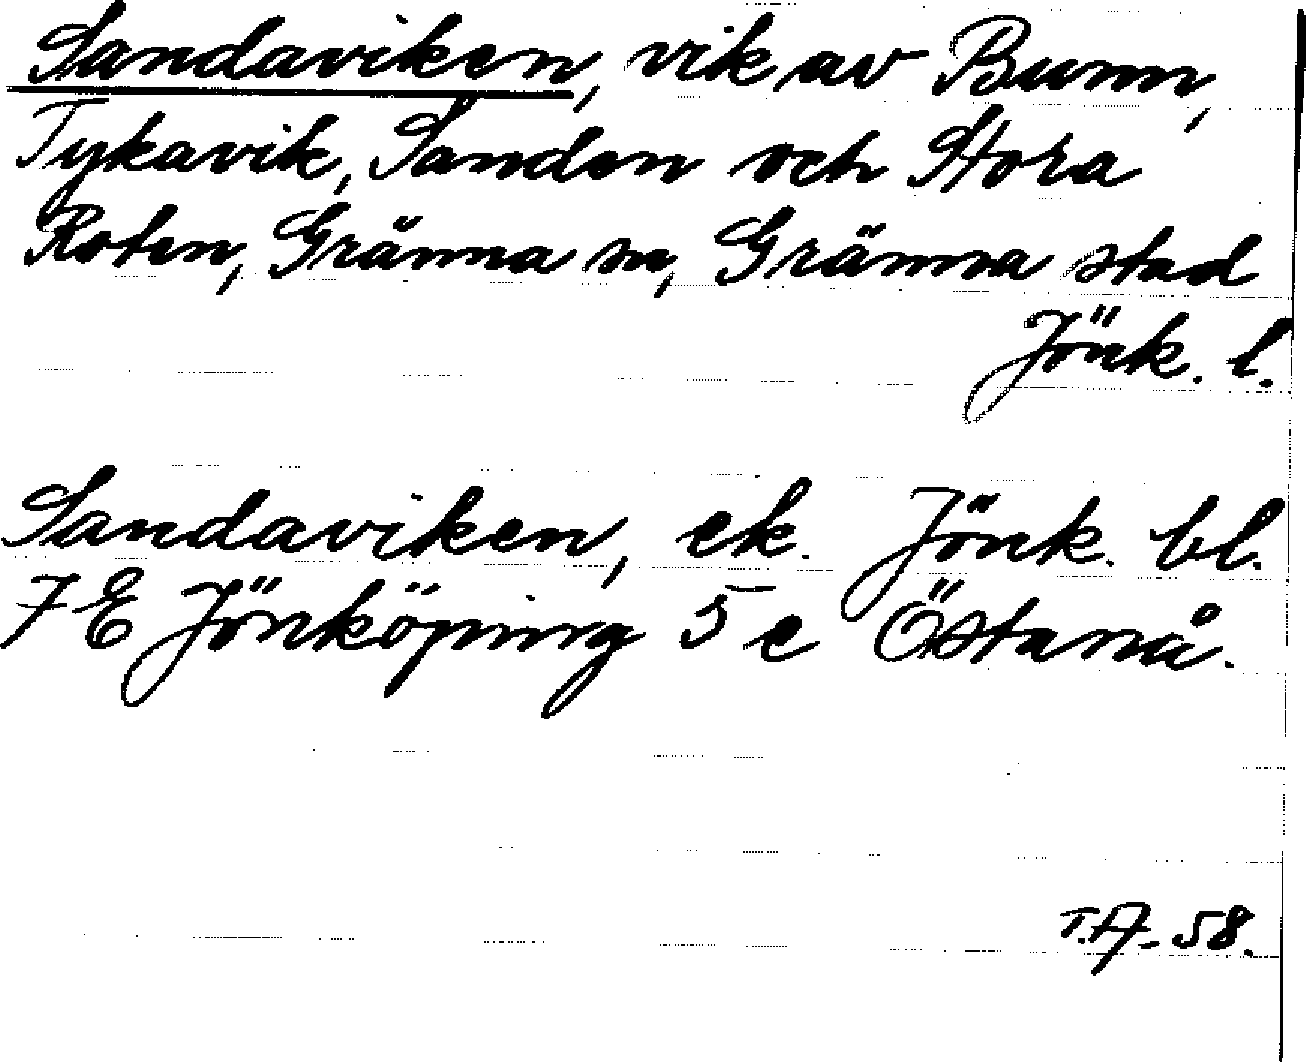 Sandaviken, vik av Bunn,
Tykavik, Sanden och Stora
Roten, Gränna sn, Gränna stad
Jönk. l.
Sandaviken, ek. Jönk. bl.
7 E Jönköping 5 e Östanå.
T.A-58.